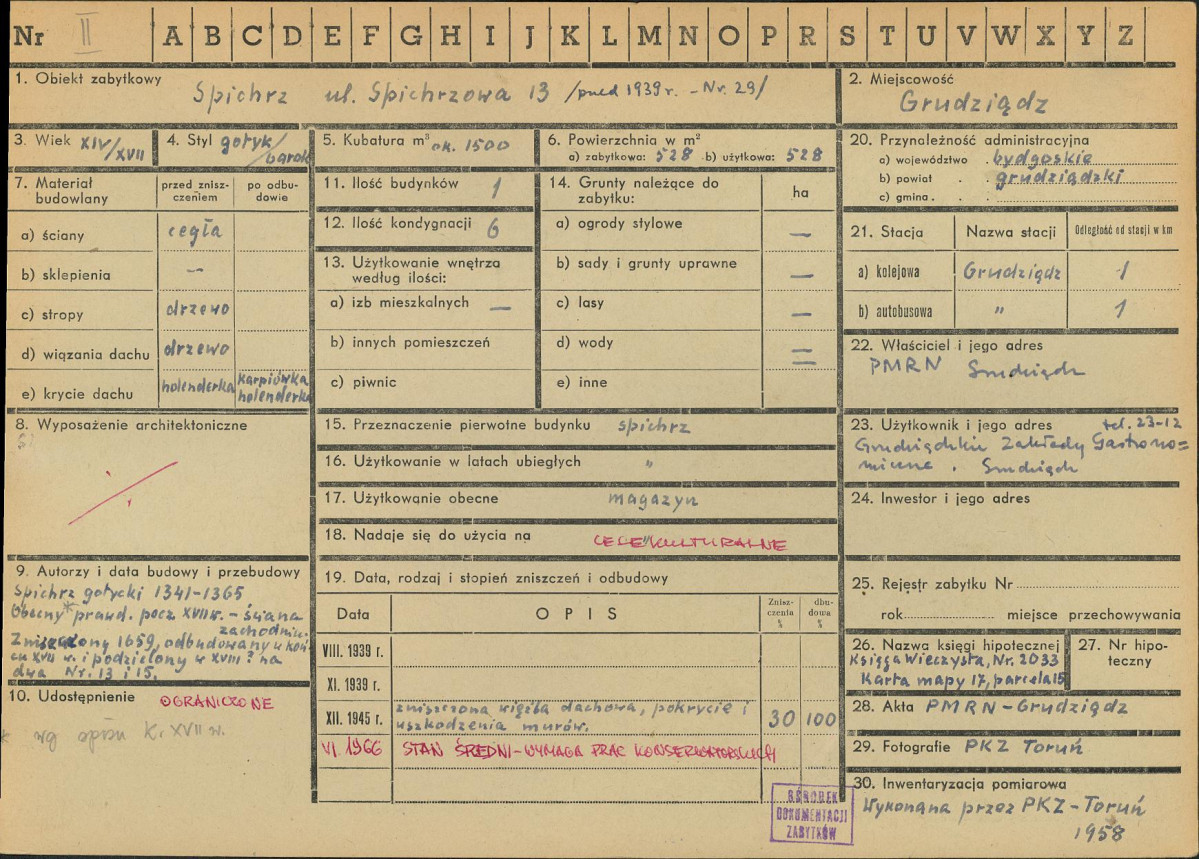 Nr II A B C D E F G H I J K L M N O P R S T U V W X Y Z
1. Obiekt zabytkowy
Spichrz ul. Spichrzowa 13 /przed 1939 r. - Nr. 29/
2. Miejscowość
Grudziądz
3. Wiek XIV/XVII
4. Styl gotyk/barok
5. Kubatura m³ ok. 1500
6. Powierzchnia w m²
a) zabytkowa: 528 b) użytkowa: 528
7. Materiał budowlany
przed zniszczeniem
po odbudowie
a) ściany cegła
b) sklepienia —
c) stropy drzewo
d) wiązania dachu drzewo
e) krycie dachu holenderka karpiówka holenderka
8. Wyposażenie architektoniczne
9. Autorzy i data budowy i przebudowy
Spichrz gotycki 1341-1365
Obecny* prawd. pocz XVII w. - ściana
zachodnia.
Zniszczony 1659, odbudowany w koń-
cu XVII w. i podzielony w XVIII? na
dwa Nr. 13 i 15.
10. Udostępnienie OGRANICZONE
* wg opisu K. XVII w.
11. Ilość budynków 1
12. Ilość kondygnacji 6
13. Użytkowanie wnętrza
według ilości:
a) izb mieszkalnych —
b) innych pomieszczeń
c) piwnic
14. Grunty należące do
zabytku:
ha
a) ogrody stylowe —
b) sady i grunty uprawne —
c) lasy —
d) wody =
e) inne
15. Przeznaczenie pierwotne budynku spichrz
16. Użytkowanie w latach ubiegłych "
17. Użytkowanie obecne magazyn
18. Nadaje się do użycia na CELE KULTURALNE
19. Data, rodzaj i stopień zniszczeń i odbudowy
Data OPIS Zniszczenia % dbudowa %
VIII. 1939 r.
XI. 1939 r.
XII. 1945 r. zniszczona więźba dachowa, pokrycie i
uszkodzenia murów. 30 100
VI. 1966 STAN ŚREDNI - WYMAGA PRAC KONSERWATORSKICH
OŚRODEK
DOKUMENTACJI
ZABYTKÓW
20. Przynależność administracyjna
a) województwo bydgoskie
b) powiat grudziądzki
c) gmina
21. Stacja Nazwa stacji Odległość od stacji w km
a) kolejowa Grudziądz 1
b) autobusowa " 1
22. Właściciel i jego adres
PMRN Grudziądz
23. Użytkownik i jego adres tel. 23-12
Grudziądzkie Zakłady Gastrono=
miczne. Grudziądz
24. Inwestor i jego adres
25. Rejestr zabytku Nr
rok miejsce przechowywania
26. Nazwa księgi hipotecznej
Księga Wieczysta, Nr. 2033
Karta mapy 17, parcela 15
27. Nr hipoteczny
28. Akta PMRN - Grudziądz
29. Fotografie PKZ Toruń
30. Inwentaryzacja pomiarowa
Wykonana przez PKZ - Toruń
1958